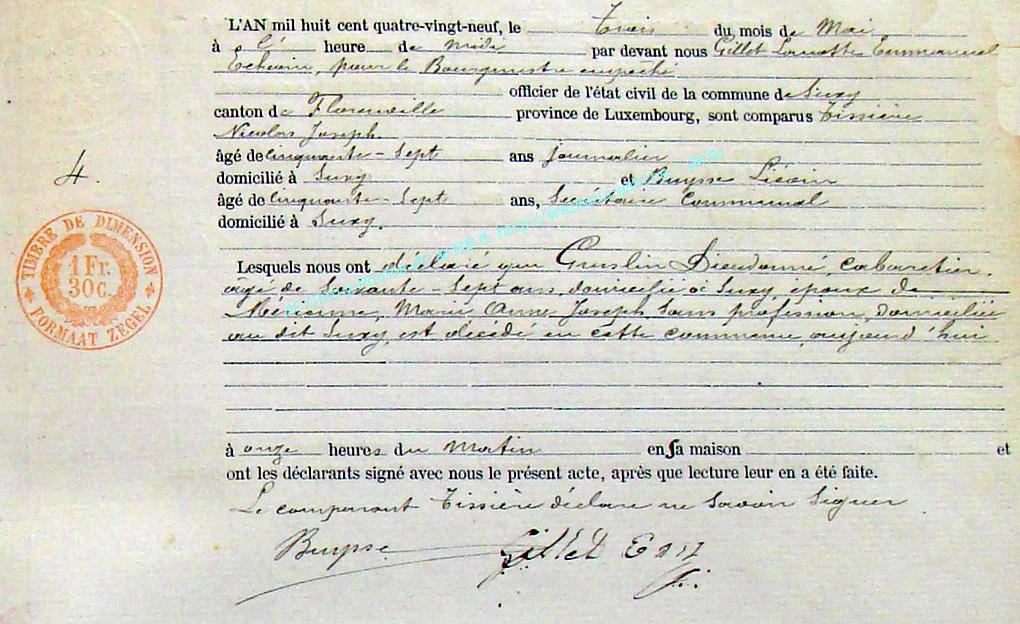 L'AN mil huit cent quatre-vingt-neuf, le trois du mois de Mai
à l' heure de midi par devant nous Gillet Emmanuel
Echevin, pour le Bourgmestre empêché
officier de l'état civil de la commune de Suxy
canton de Florenville province de Luxembourg, sont comparus Tissière
Nicolas Joseph
âgé de cinquante-sept ans journalier
domicilié à Suxy et Buysse Liévin
âgé de cinquante-sept ans, Secrétaire Communal
domicilié à Suxy.
4.
TIMBRE DE DIMENSION
1 Fr.
30 c.
FORMAAT ZEGEL
Lesquels nous ont déclaré que Guslin Dieudonné, cabaretier
agé de soixante-sept ans, domicilié à Suxy, époux de
Marie Anne Joseph sans profession, domiciliée
au dit Suxy, est décédé en cette commune, aujourd'hui
à onze heures du matin en sa maison et
ont les déclarants signé avec nous le présent acte, après que lecture leur en a été faite.
Le comparant Tissière déclare ne savoir signer
Buysse Gillet